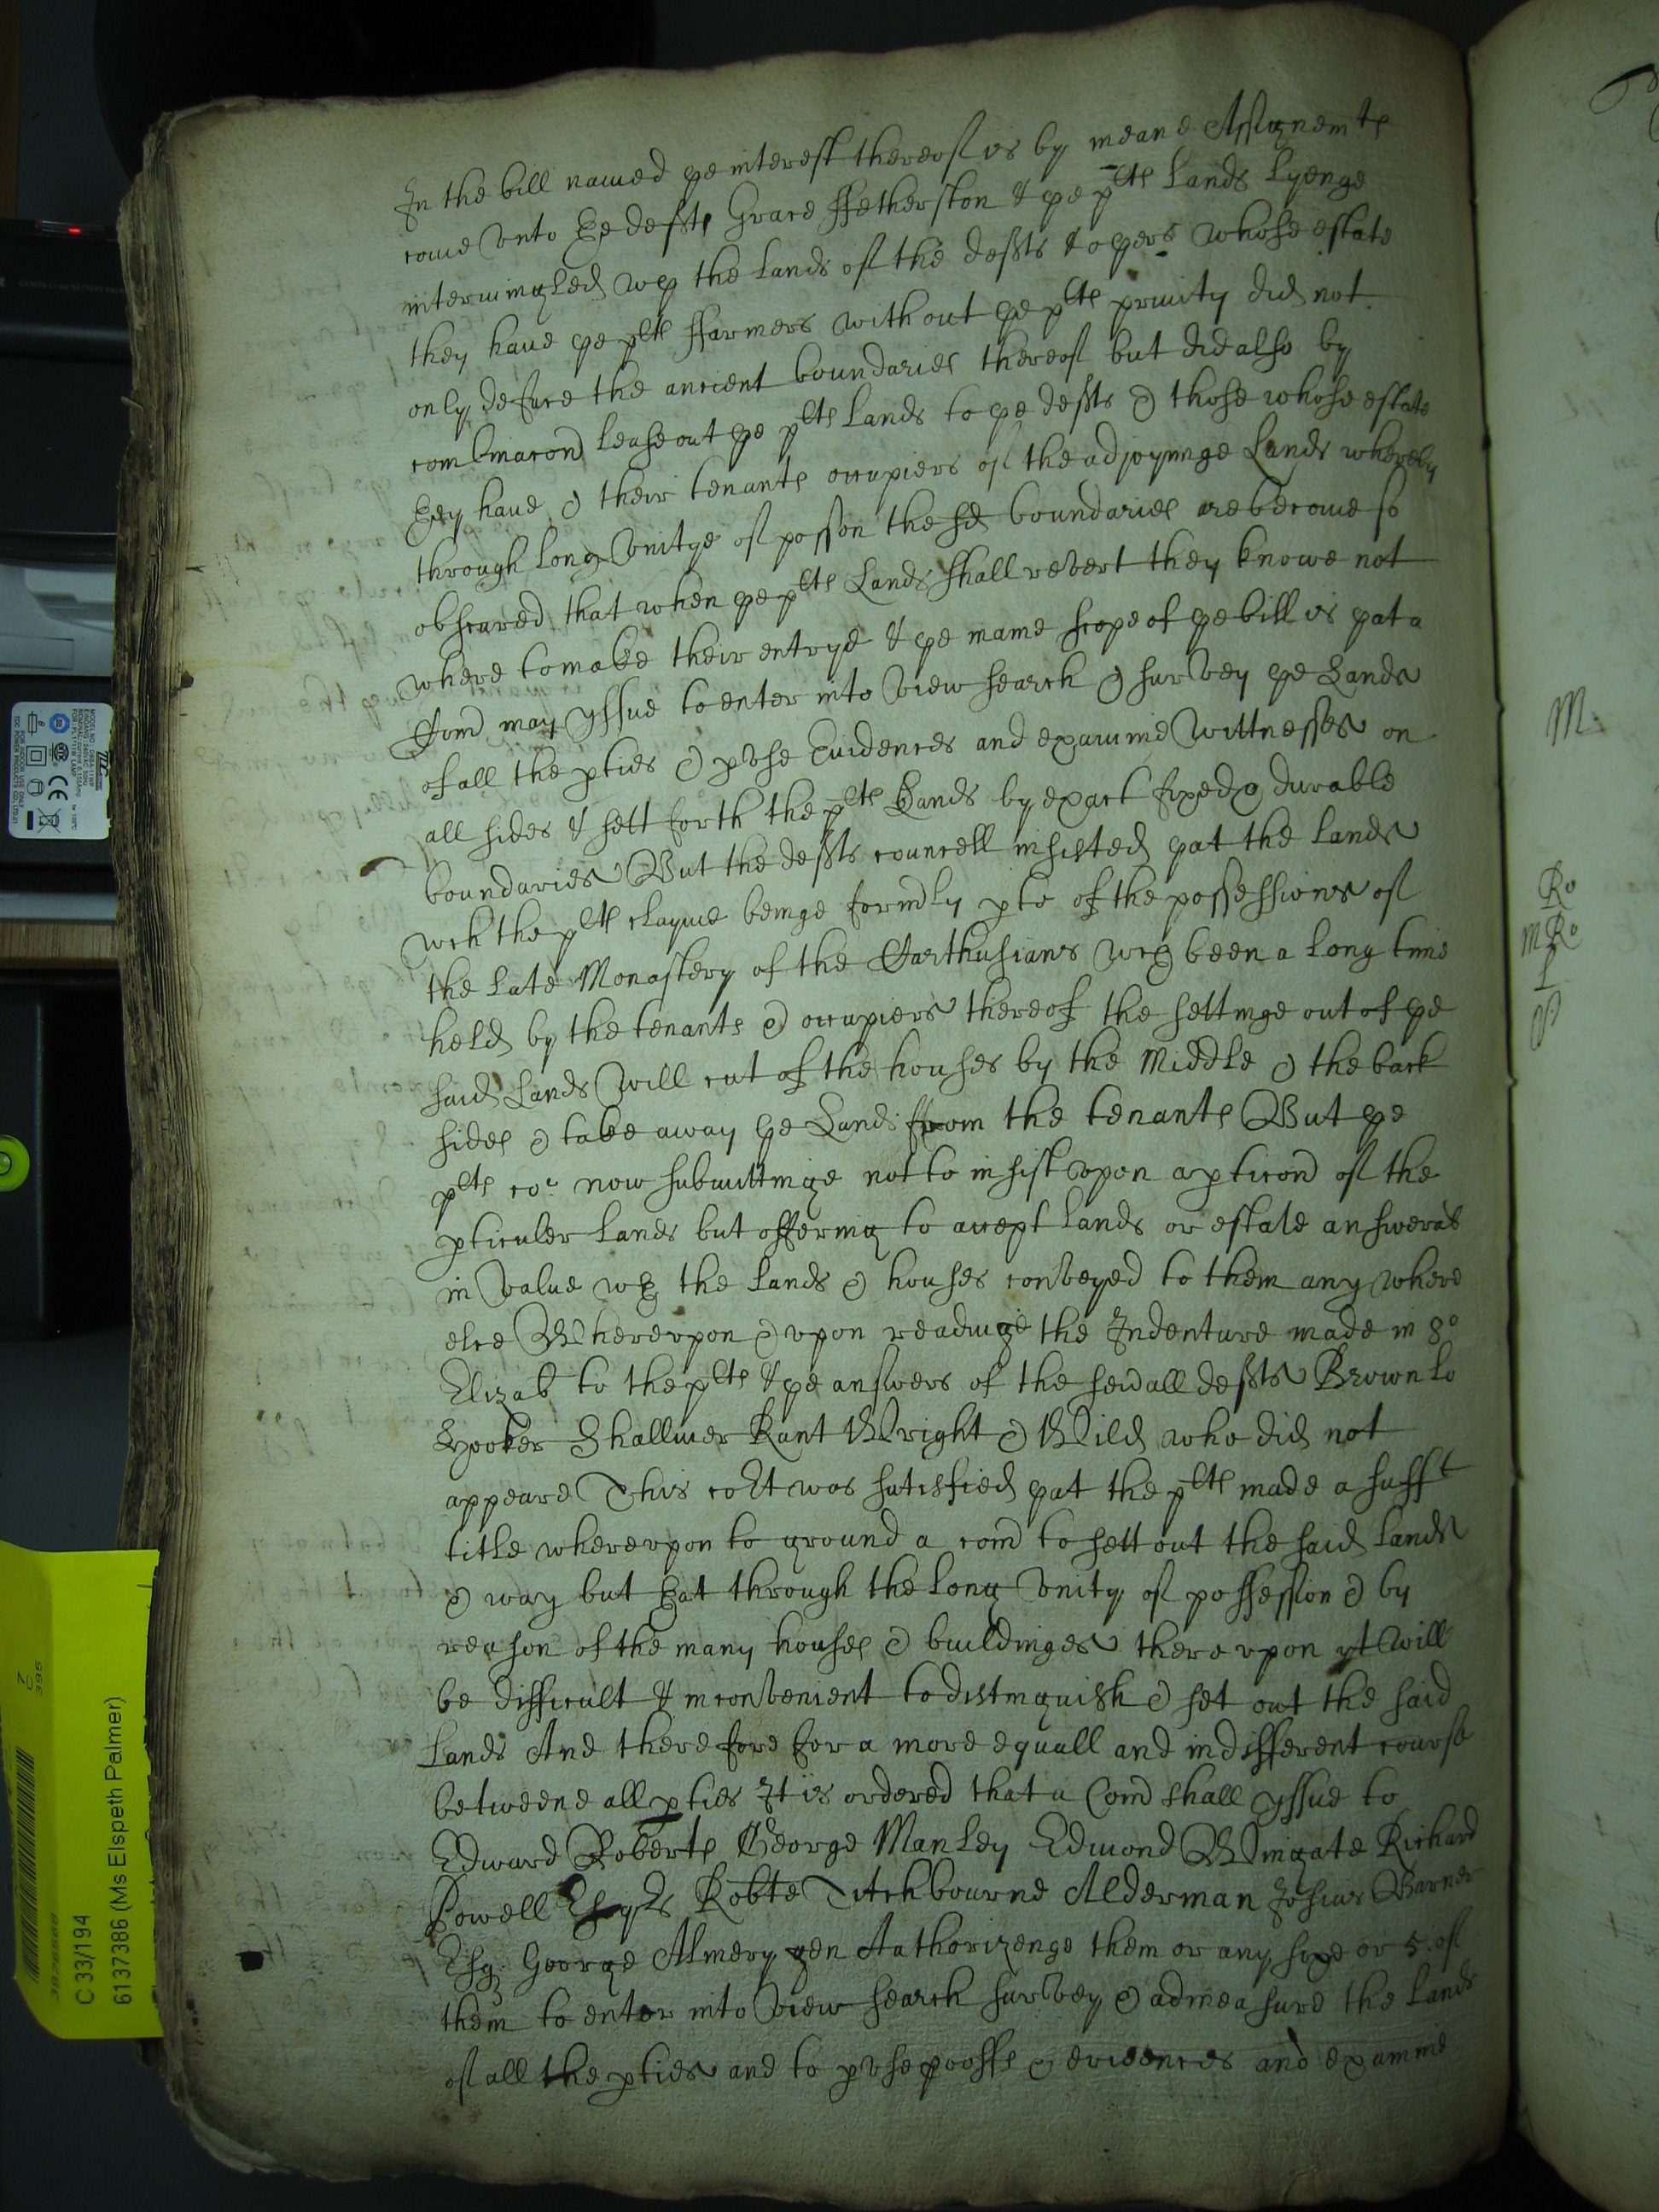 In the bill named ye interest thereof is by meane Assignemts
come vnto ye defts Grace ffetherston & ye plts Lands Lyenge
intermingled wth the lands of the defts & oyers whose estate
they have ye plts ffarmers without ye plts privity did not
only deface the ancient boundaries thereof but did also by
combinacon lease out ye plts lands to ye defts & those whose estate
they have & their tenants occupiers of the adjoyninge Lands whereby
through long vnitye of possion the sd boundaries are become so
obscured that when ye plts Lands shall revert they knowe not
where to make their entrye & ye maine scope of ye bill is yat a
Com may yssue to enter into view search & survey ye Lands
of all the pties & pvse Euidences and examine Wittnesses on
all sides & sett forth the plts Lands by exact fixed & durable
boundaries But the defts councell insisted yat the lands
wch the plts clayme beinge formly pte of the possessions of
the late Monastery of the Carthusians wch been a long time
held by the tenants & occupiers thereof the settinge out of ye
said Lands will cut of the houses by the Middle & the back
sides & take away ye Lands from the tenants But ye
plts co: now submittinge not to insist vpon a pticon of the
pticuler lands but offering to accept lands or estate answerab
in value wth the lands & houses conveyed to them any where
else Wherevpon & vpon readinge the Indenture made in 8o
Elizab to the plts & ye answers of the sevall defts Brownlo
Hooker Shallmer Kant Wright & Wild who did not
appeare This cort was satisfied yat the plts made a sufft
title wherevpon to ground a com to sett out the said lands
& way but yat through the long vnity of possession & by
reason of the many houses & buildinges there vpon yt will
be difficult & inconvenient to distinguish & set out the said
Lands And therefore for a more equall and indifferent course
betweene all pties It is ordered that a Com shall yssue to
Edward Roberts George Manley Edmond Wingate Richard
Powell Esqrs Robte Titchbourne Alderman Josius Barner
Esq George Almery gen Aathorizenge them or any sixe or 5 of
them to enter into view search survey & admeasure the lands
of all the pties and to pvse prooffs & evidences and examine
M:
Ro
MRo
L
C 33/194
6137386 (Ms Elspeth Palmer)